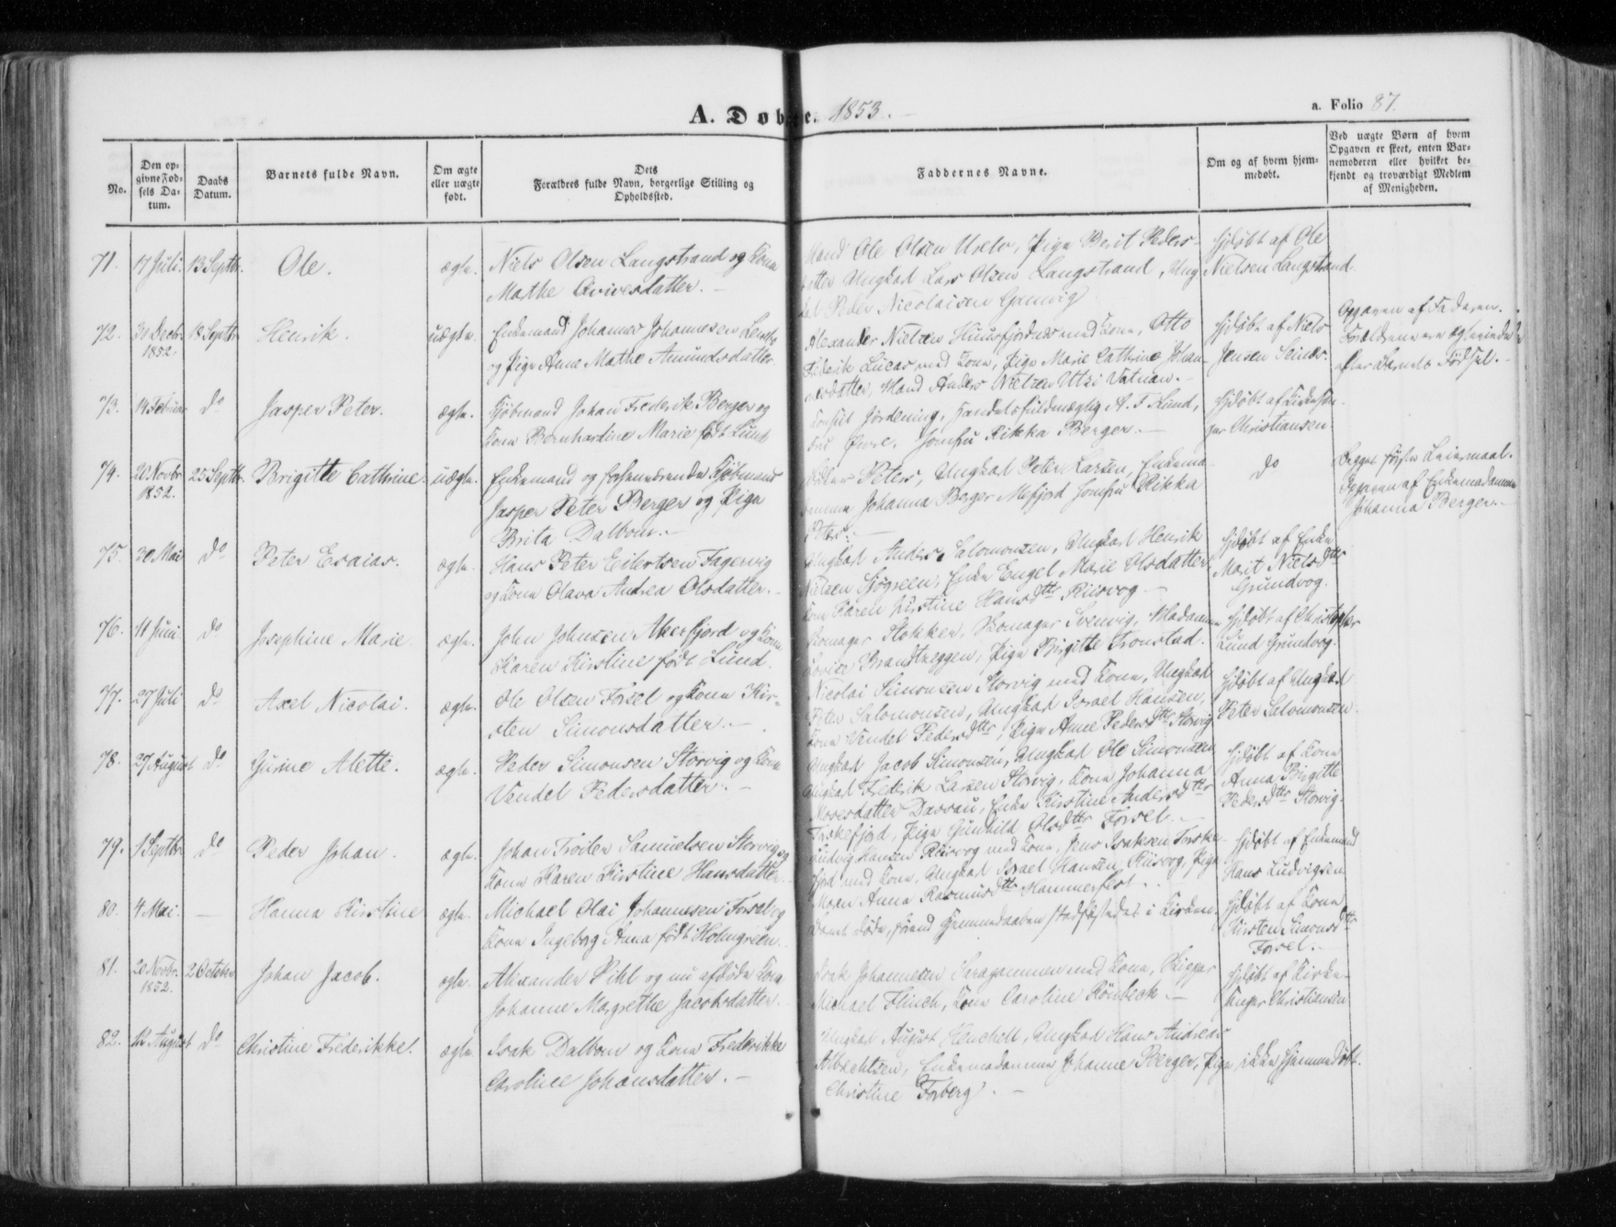 A. Døbte. 1853.
a. Folio 87.
No.
Den opgivne Fødsels Datum.
Daabs Datum.
Barnets fulde Navn.
Om ægte eller uægte født.
Dets Forældres fulde Navn, borgerlige Stilling og Opholdssted.
Faddernes Navne.
Om og af hvem hjemmedøbt.
Ved uægte Børn af hvem Opgaven er skeet, enten Barnemoderen eller hvilket bekjendt og troværdigt Medlem af Menigheden.
71. 17 Juli. 13 Septbr. Ole. ægte.
Niels Olsen Langstrand og Kone
Marthe
Mand Ole Olsen Pige Berit Peders-
datter Ungkarl Lars Olsen Langstrand, Ung-
Peder Nicolaisen
hjdøbt af Ole
Nielsen Langstrand
72. 31 Decbr. 1852. 18 Septbr. Henrik. uægte.
Enkemand Johannes Johannesen
og Pige Anne Marthe Amundsdatter
Alexander Nielsen med Kone, Otto
Fiderik Lucas med Kone, Pige Marie Cathrine Johan-
nesdatter, Mand Anders Nielsen Utsi
hjdøbt af Niels
Jensen
Opgaven af Faderen.
Forældrene ere
efter Barnets Fødsel.
73. 14 Februar do Jasper Peter. ægte.
Kjøbmand Johan Frederik Berger og
Kone Bernhardine Marie født Lund
Consul A. F. Lund,
Jomfru Rikka Berger.
hjdøbt af
Christiansen
74. 20 Novbr. 1852. 25 Septbr. Brigitte Cathrine. uægte.
Enkemand og Kjøbmand
Jasper Peter Berger og Pige
Brita Dalbom.
Peters, Ungkarl Peter Larsen, Enkema-
Johanna Berger Mefjord Jomfru Rikka
Peters.
do
Begges første Leiermaal.
Opgaven af Enkemadamme
Johanna Berger.
75. 30 Mai do Peter Esaias. ægte.
Hans Peter Eilertsen Fagervig
og Kone Olava Andrea Olsdatter.
Ungkarl Anders Salomonsen, Ungkarl Henrik
Nielsen Enke Engel Marie Olsdatter,
Kone Karen Kirstine Hansdtr
hjdøbt af Enke
Marit Nielsdtr
Grundvog.
76. 11 Juni do Josephine Marie ægte.
John Johnsen Akkerfjord og Kone
Karen Kirstine født Lund.
Skomager Stokker, Skomager Svenvig, Madamme
Lovise Pige Brigitte Tronstad.
hjdøbt af Christopher
Lund Grundvog.
77. 27 Juli do Axel Nicolai. ægte.
Ole Olsen Forsel og Kone Kir-
sten Simonsdatter.
Nicolai Simonsen Storvig med Kone, Ungkarl
Peter Salomonsen, Ungkarl Israel Hansen,
Kone Vendel Pedersdtr, Pige Anne Pedersdtr Storvig
hjdøbt af Ungkarl
Peter Salomonsen
78. 27 August do Gurine Alette. ægte.
Peder Simonsen Storvig og Kone
Vendel Pedersdatter.
Ungkarl Jacob Simonsen, Ungkarl Ole Simonsen,
Ungkarl Frederik Larsen Storvig, Kone Johanna
Mosesdatter Enke Kirstine Andersdtr
Pige Gunhild Olsdtr Forsel.
hjdøbt af Kone
Anna Birgitte
Pedersdtr Storvig.
79. 1 Septbr. do Peder Johan. ægte.
Johan Samuelsen Storvig og
Kone Karen Kirstine Hansdatter
Ludvig Hansen med Kone, Jens Isaksen
med Kone, Ungkarl Israel Hansen, Pige
Anna Rasmusdtr Hammerfest.
hjdøbt af Enkemand
Hans Ludvigsen
80. 4 Mai. — Hanna Kirstine ægte.
Michael Olai Johannesen Forsel og
Kone Ingeborg Anna født Holmgreen.
Barnet døde, førend Hjemmedaaben stadfæstedes i Kirken.
hjdøbt af Kone
Kirsten Simonsdtr
Forsel.
81. 20 Novbr. 1852. 2 October Johan Jacob. ægte.
Alexander Pihl og nu afdøde Kone
Johanne Margrethe Jacobsdatter.
Isak Johannesen med Kone, Skipper
Michael Kone Caroline Rönbeck.
hjdøbt af Kirke-
sanger Christiansen
82. August do Christine Frederikke. ægte.
Isak Dalbom og Kone Frederikke
Caroline Johansdatter.
Ungkarl August Ungkarl Hans Andreas
Albrechtsen, Enkemadamme Johanne Berger, Pige
Christine Forberg.
ikke hjemmedøbt.